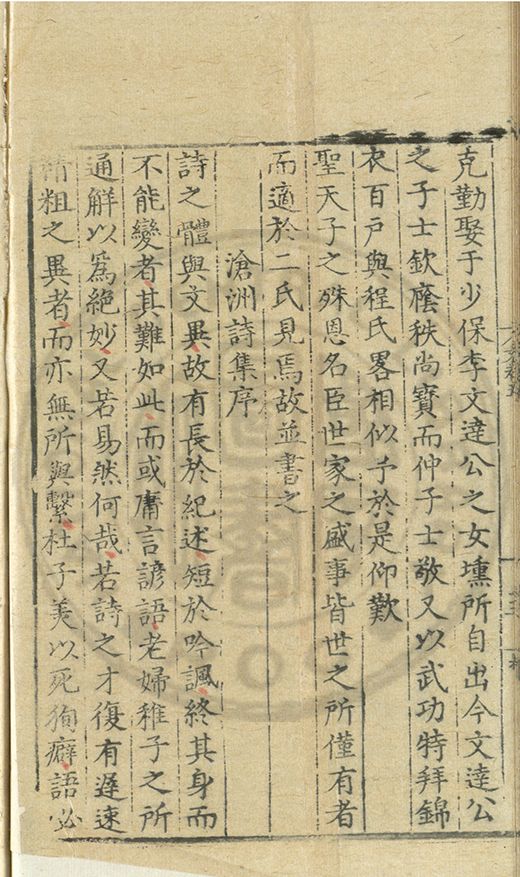 克勤娶于少保李文達公之女壎所自出今文達公
之子士欽廕秩尚寶而仲子士敬又以武功特拜錦
衣百戶與程氏畧相似予於是仰歎
聖天子之殊恩名臣世家之盛事皆世之所僅有者
而適於二氏見焉故並書之
滄洲詩集序
詩之體與文異故有長於紀述短於吟諷終其身而
不能變者其難如此而或庸言諺語老婦稚子之所
通解以爲絶妙又若易然何哉若詩之才復有遲速
精粗之異者而亦無所與繫杜子美以死狥癖語必